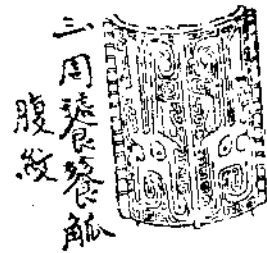 三、周饕餮觚
腹紋